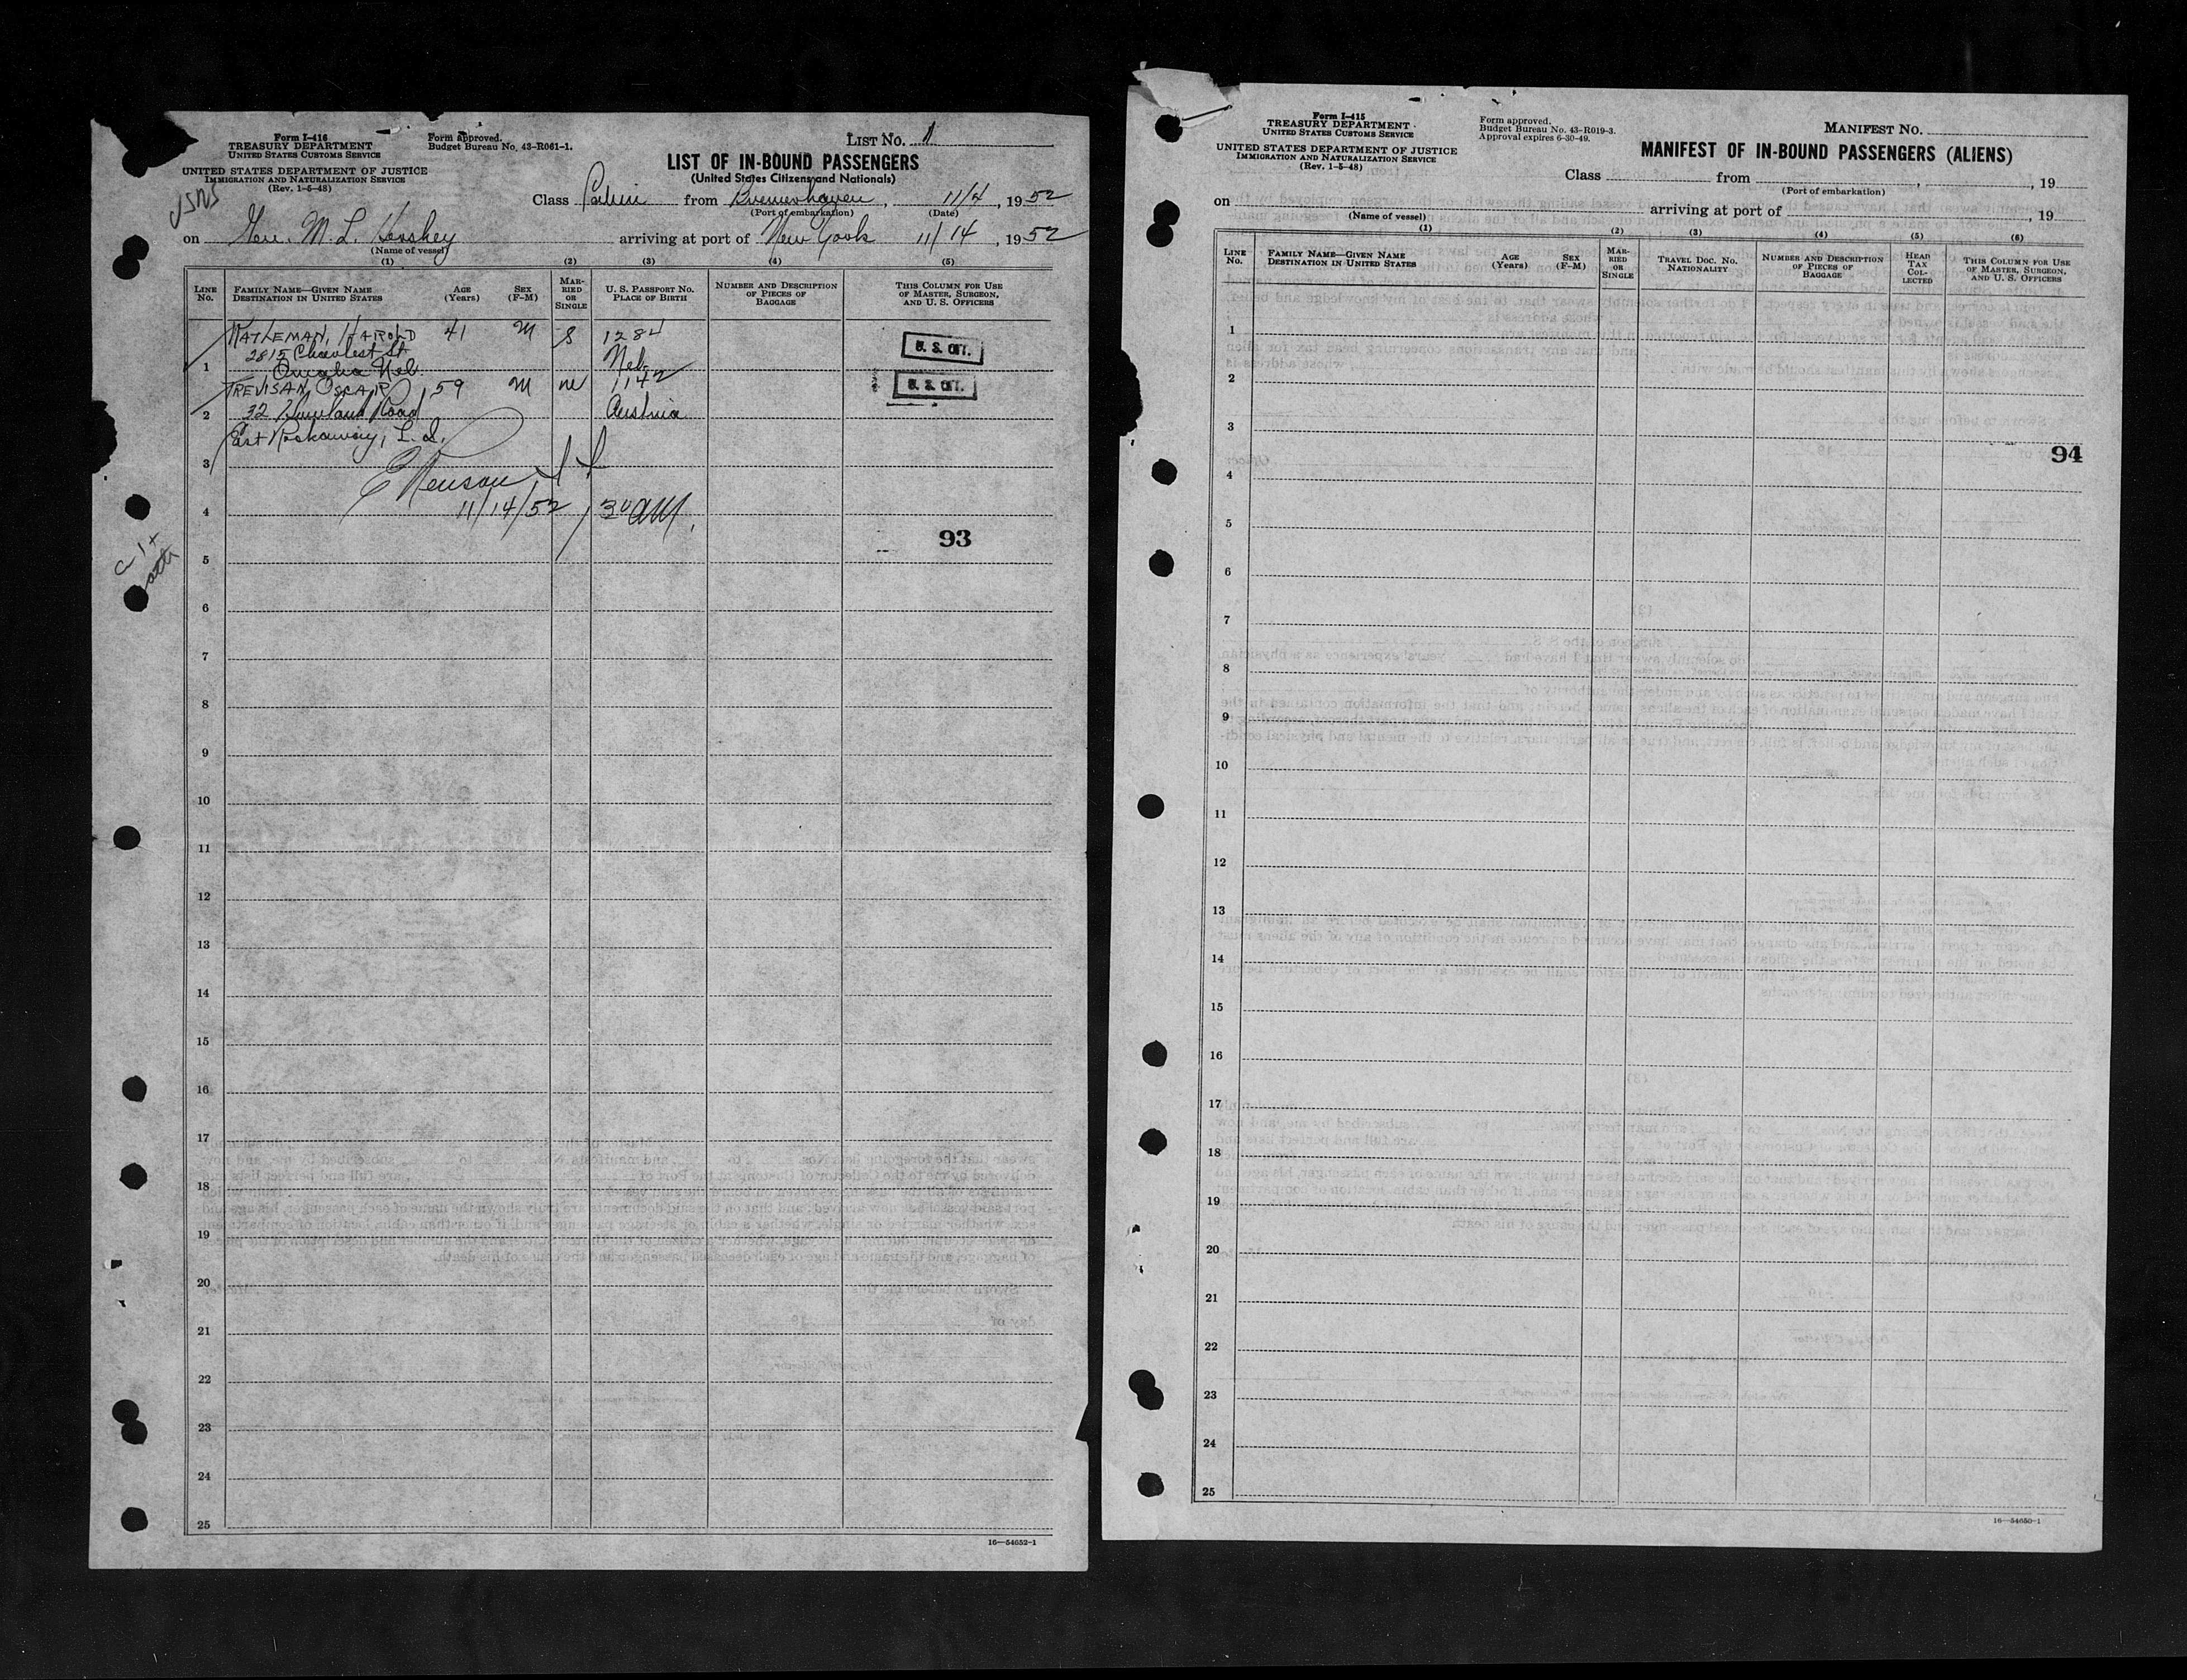 Form I-416
TREASURY DEPARTMENT
UNITED STATES CUSTOMS SERVICE
UNITED STATES DEPARTMENT OF JUSTICE
IMMIGRATION AND NATURALIZATION SERVICE
(Rev. 1-5-48)
Form approved.
Budget Bureau No. 43-R061-1.
LIST NO. 1
LIST OF IN-BOUND PASSENGERS
(United States Citizens and Nationals)
USNS
Class Cabin from Bremerhaven, 11/4, 1952
(Port of embarkation) (Date)
on Gen. M. L. Hershey arriving at port of New York 11/14, 1952
(Name of vessel)
(1) (2) (3) (4) (5)
LINE NO.
FAMILY NAME—GIVEN NAME
DESTINATION IN UNITED STATES
AGE (Years)
SEX (F-M)
MARRIED OR SINGLE
U. S. PASSPORT NO.
PLACE OF BIRTH
NUMBER AND DESCRIPTION OF PIECES OF BAGGAGE
THIS COLUMN FOR USE OF MASTER, SURGEON, AND U. S. OFFICERS
HAROLD 41 M S 1284
2815 St
1 Omaha Neb. Neb.
U. S. CIT.
TREVISAN, OSCAR 59 M 1142
2 32 Road Austria
U. S. CIT.
East Rockaway, L. I.
3
11/14/52
4
93
5
6
7
8
9
10
11
12
13
14
15
16
17
18
19
20
21
22
23
24
25
16—54652-1
Form I-415
TREASURY DEPARTMENT
UNITED STATES CUSTOMS SERVICE
UNITED STATES DEPARTMENT OF JUSTICE
IMMIGRATION AND NATURALIZATION SERVICE
(Rev. 1-5-48)
Form approved.
Budget Bureau No. 43-R019-3.
Approval expires 6-30-49.
MANIFEST NO.
MANIFEST OF IN-BOUND PASSENGERS (ALIENS)
Class from , , 19
(Port of embarkation)
on arriving at port of , 19
(Name of vessel)
(1) (2) (3) (4) (5) (6)
LINE NO.
FAMILY NAME—GIVEN NAME
DESTINATION IN UNITED STATES
AGE (Years)
SEX (F-M)
MARRIED OR SINGLE
TRAVEL DOC. NO.
NATIONALITY
NUMBER AND DESCRIPTION OF PIECES OF BAGGAGE
HEAD TAX COLLECTED
THIS COLUMN FOR USE OF MASTER, SURGEON, AND U. S. OFFICERS
1
2
3
94
4
5
6
7
8
9
10
11
12
13
14
15
16
17
18
19
20
21
22
23
24
25